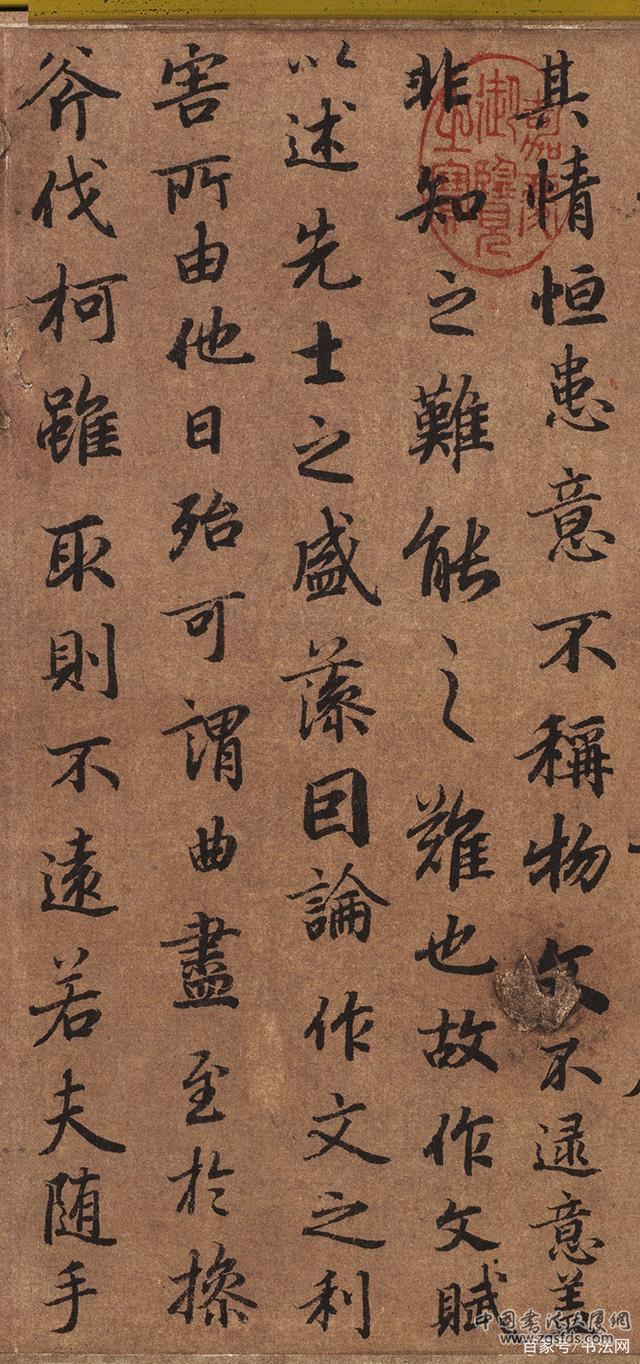 其情恒患意不稱物文不逮意盖
非知之難能之難也故作文賦
以述先士之盛藻因論作文之利
害所由他日殆可謂曲盡至於操
斧伐柯雖取則不遠若夫随手
嘉慶御覽之寶
中国书法大厦网
www.zgsfds.com
百家号/书法网